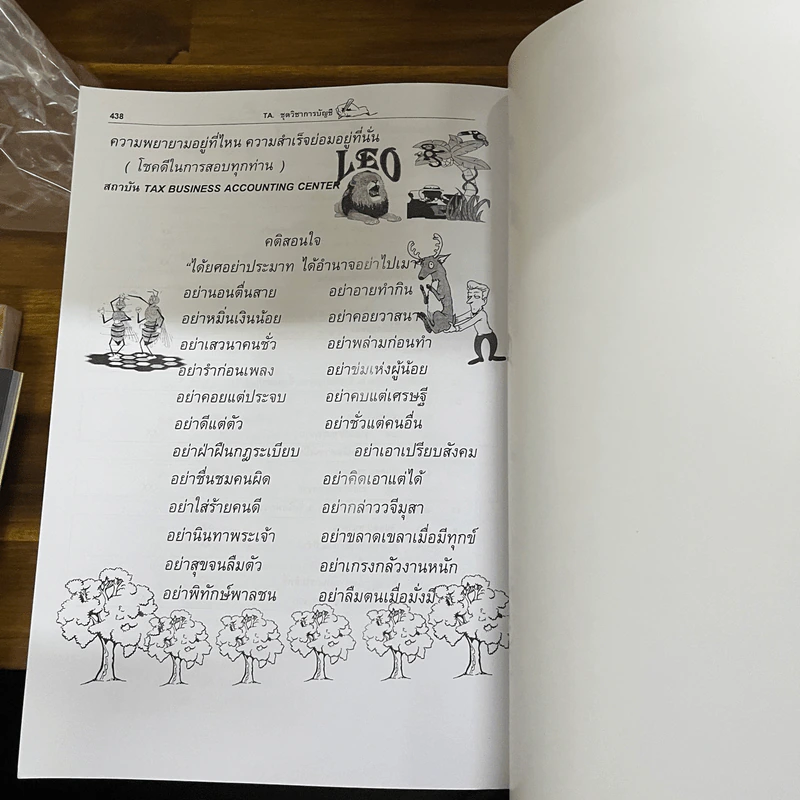 438 TA. ชุดวิชาการบัญชี
ความพยายามอยู่ที่ไหน ความสำเร็จย่อมอยู่ที่นั่น
( โชคดีในการสอบทุกท่าน )
LEO
สถาบัน TAX BUSINESS ACCOUNTING CENTER
คติสอนใจ
"ได้ยศอย่าประมาท ได้อำนาจอย่าไปเมา
อย่านอนตื่นสาย อย่าอายทำกิน
อย่าหมิ่นเงินน้อย อย่าคอยวาสนา
อย่าเสวนาคนชั่ว อย่าพล่ามก่อนทำ
อย่ารำก่อนเพลง อย่าข่มเหงผู้น้อย
อย่าคอยแต่ประจบ อย่าคบแต่เศรษฐี
อย่าดีแต่ตัว อย่าชั่วแต่คนอื่น
อย่าฝ่าฝืนกฎระเบียบ อย่าเอาเปรียบสังคม
อย่าชื่นชมคนผิด อย่าคิดเอาแต่ได้
อย่าใส่ร้ายคนดี อย่ากล่าววจีมุสา
อย่านินทาพระเจ้า อย่าขลาดเขลาเมื่อมีทุกข์
อย่าสุขจนลืมตัว อย่าเกรงกลัวงานหนัก
อย่าพิทักษ์พาลชน อย่าลืมตนเมื่อมั่งมี